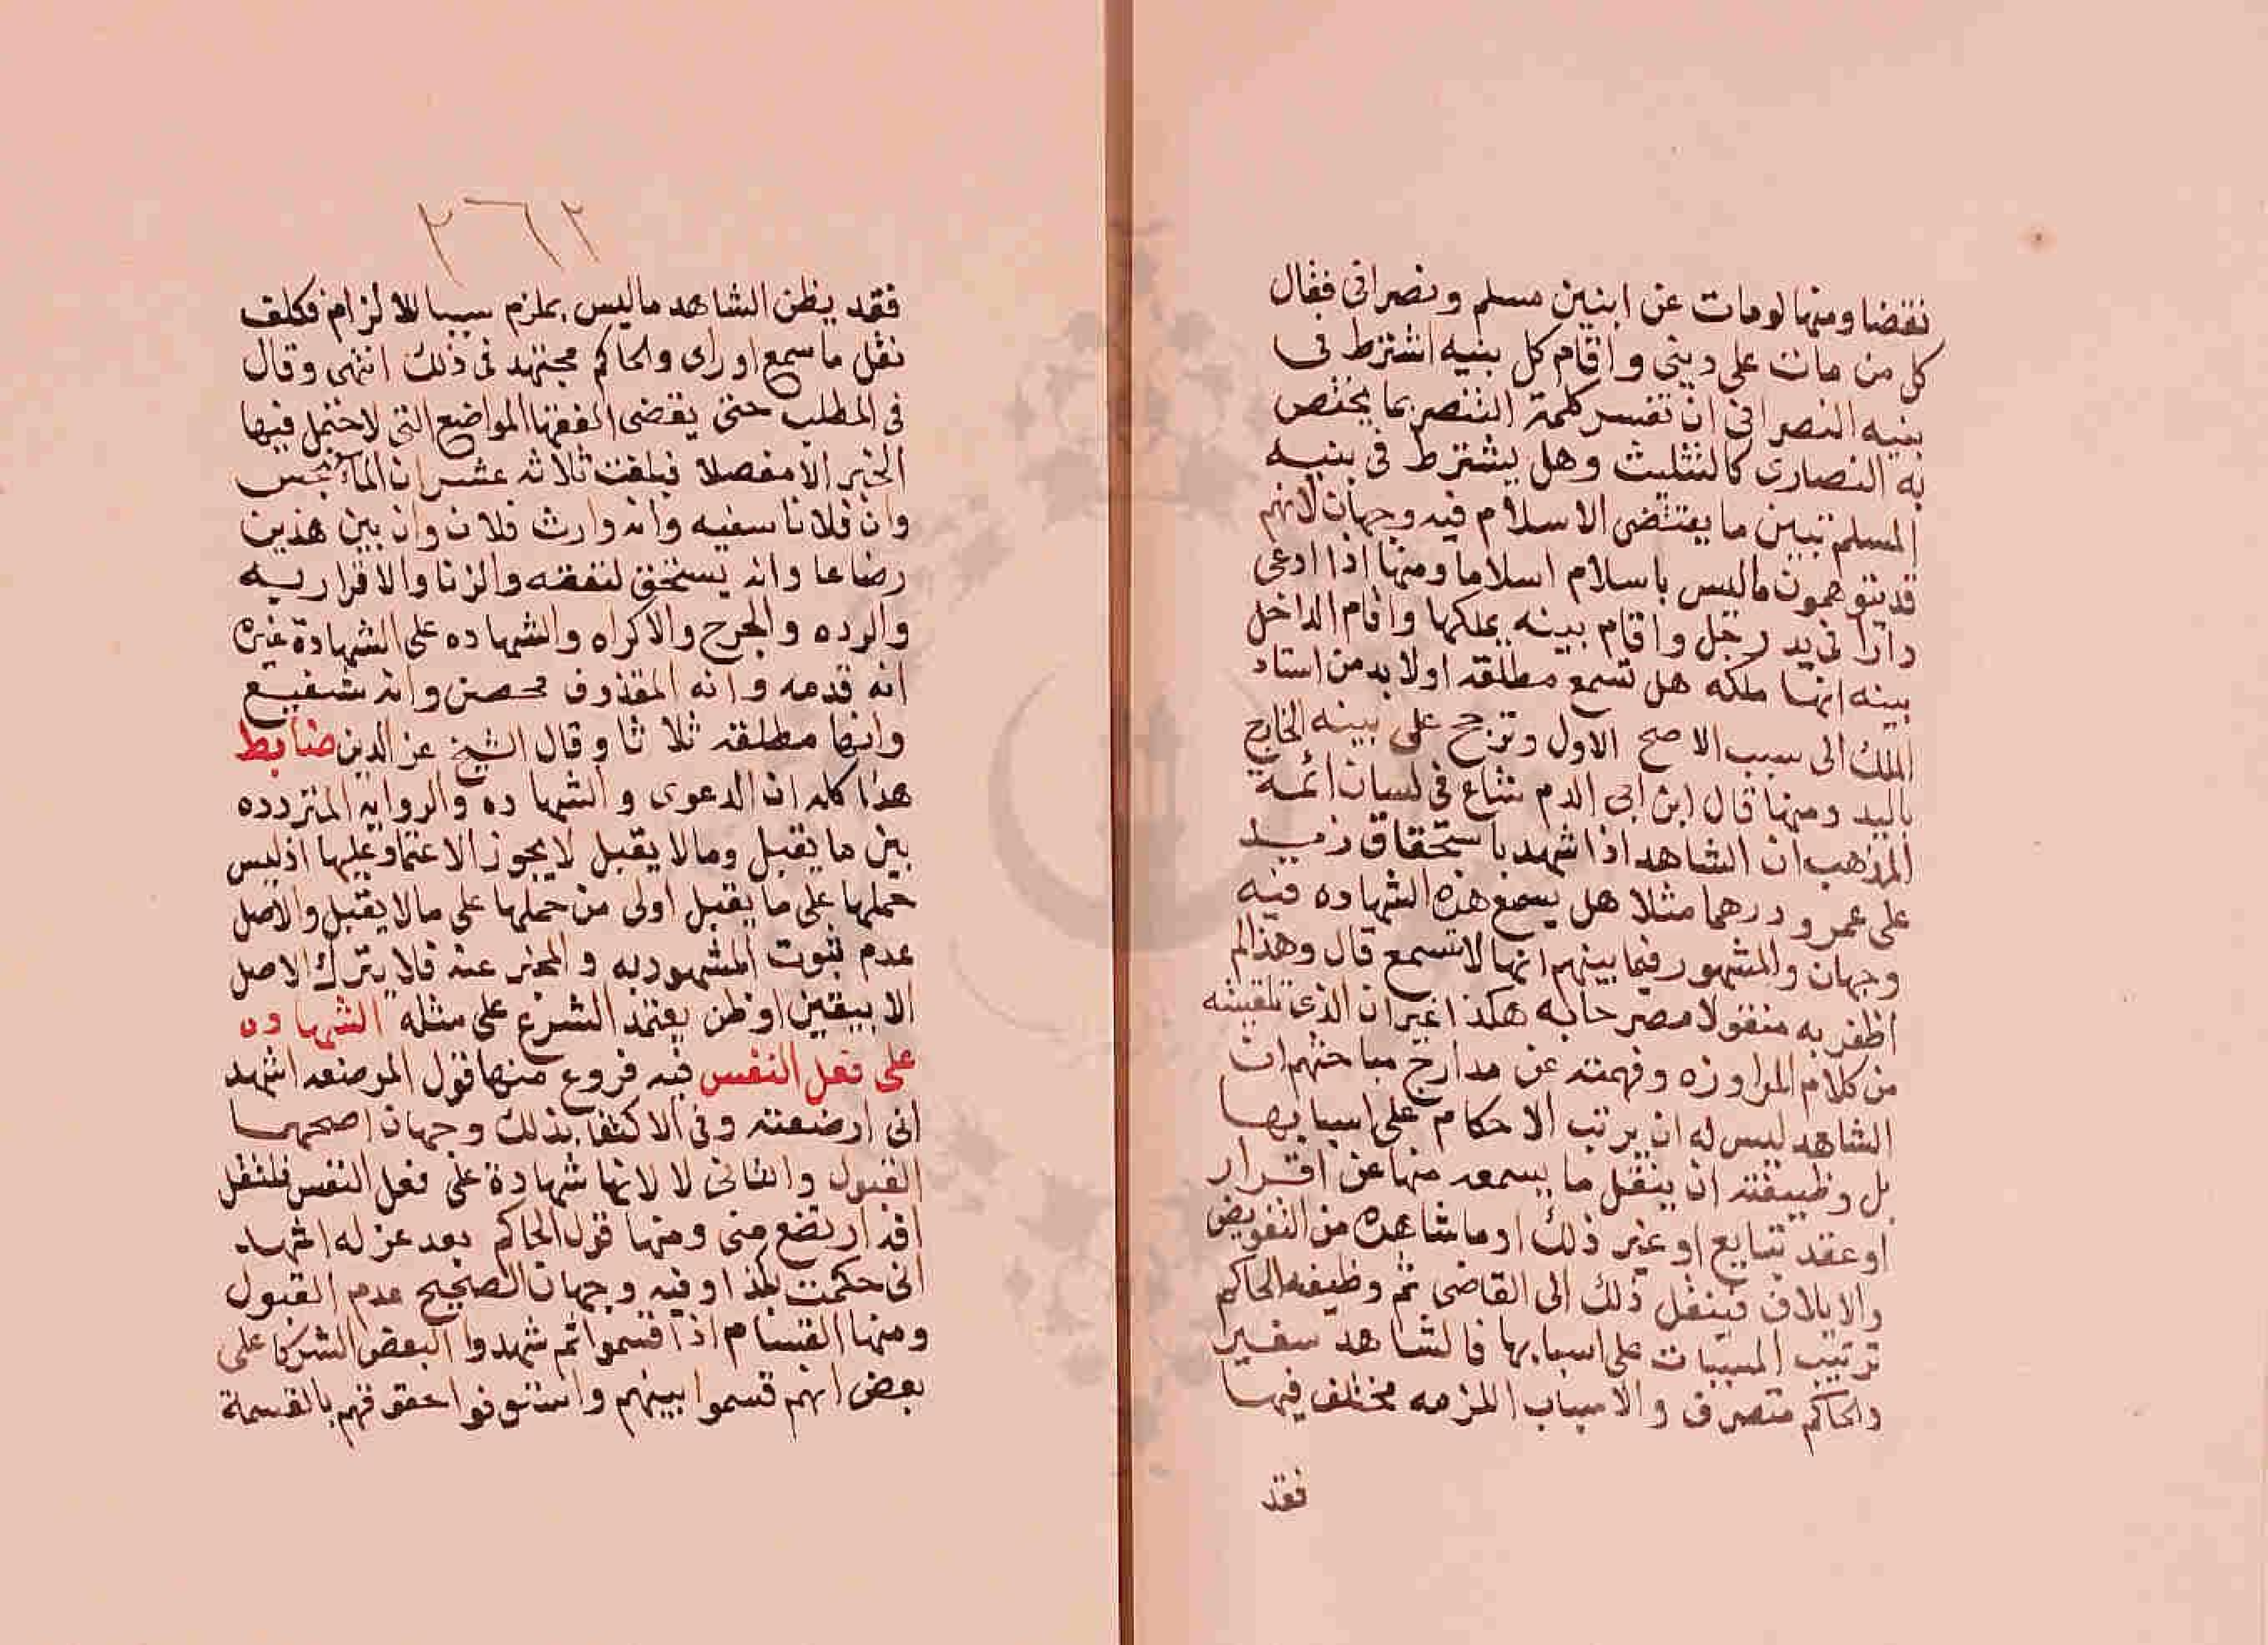 نقضا ومنها لو مات عن ابنين مسلم ونصراني فقال
كل من مات على ديني واقام كل بنيه اشترط في
بنيه النصراني ان تفسر كلمة التنصر بما يختص
به النصارى كالتثليث وهل يشترط في بنيه
المسلم تبين ما يقتضى الاسلام فيه وجهان لانهم
قد يتوهمون ماليس باسلام اسلاما ومنها اذا ادعى
دارا في يد رجل واقام بينه بملكها واقام الداخل
بينه انها ملكه هل تسمع مطلقه او لا بد من اسناد
الملك الى سبب الاصح الاول وترجح على بينه الخارج
باليد ومنها قال ابن ابى الدم شاع في لسان ائمة
المذهب ان الشاهد اذا شهد باستحقاق زيد
على عمرو درهما مثلا هل يسمع هذه الشهاده فيه
وجهان والمشهور فيما بينهم انها لا تسمع قال وهذا لم
اظفر به منقولا مصرحا به هكذا غير ان الذى تلقيته
من كلام المراوزه وفهمته عن مدارج مباحثهم ان
الشاهد ليس له ان يرتب الاحكام على اسبابها
بل وظيفته ان ينقل ما يسمعه منها عن اقرار
او عقد تبايع او غير ذلك او ما شاهده من التفويض
والايلاف فينقل ذلك الى القاضى ثم وظيفه الحاكم
ترتيب المسببات على اسبابها فالشاهد سفير
والحاكم متصرف والاسباب الملزمه مختلف فيها
فقد
٣٦٢
فقد يظن الشاهد ماليس بملزم سببا للالزام فكلف
نقل ما سمع او راى والحاكم مجتهد في ذلك انتهى وقال
في المطلب حتى يقضى الفقها المواضع التى لا حتمل فيها
الخبر الا مفصلا فبلغت ثلاثه عشر ان الما نجس
وان فلانا سفيه وانه وارث فلان وان بين هذين
رضاعا وانه يستحق لنفقه والزنا والاقرار به
والرده والجرح والاكراه والشهاده على الشهادة غيره
انه قدمه وانه المقذوف محصن وانه شفيع
وانها مطلقه ثلاثا وقال الشيخ عز الدين ضابط
هذا كله ان الدعوى والشهاده والروايه المتردده
بين ما يقبل وما لا يقبل لا يجوز الاعتماد عليها اذ ليس
حملها على ما يقبل اولى من حملها على ما لا يقبل والاصل
عدم ثبوت المشهود به والمخبر عنه فلا يترك الاصل
الا بيقين او ظن يعتمد الشرع على مثله الشهاده
على فعل النفس فيه فروع منها قول المرضعه اشهد
انى ارضعته وفي الاكتفا بذلك وجهان اصحهما
القبول والثانى لا لانها شهادة على فعل النفس فلتقل
اقد ارتضع منى ومنها قول الحاكم بعد عزله اشهد
انى حكمت لكذا وفيه وجهان الصحيح عدم القبول
ومنها القسام اذا قسموا ثم شهدوا البعض الشركا على
بعض انهم قسموا بينهم واستوفوا حقوقهم بالقسمة